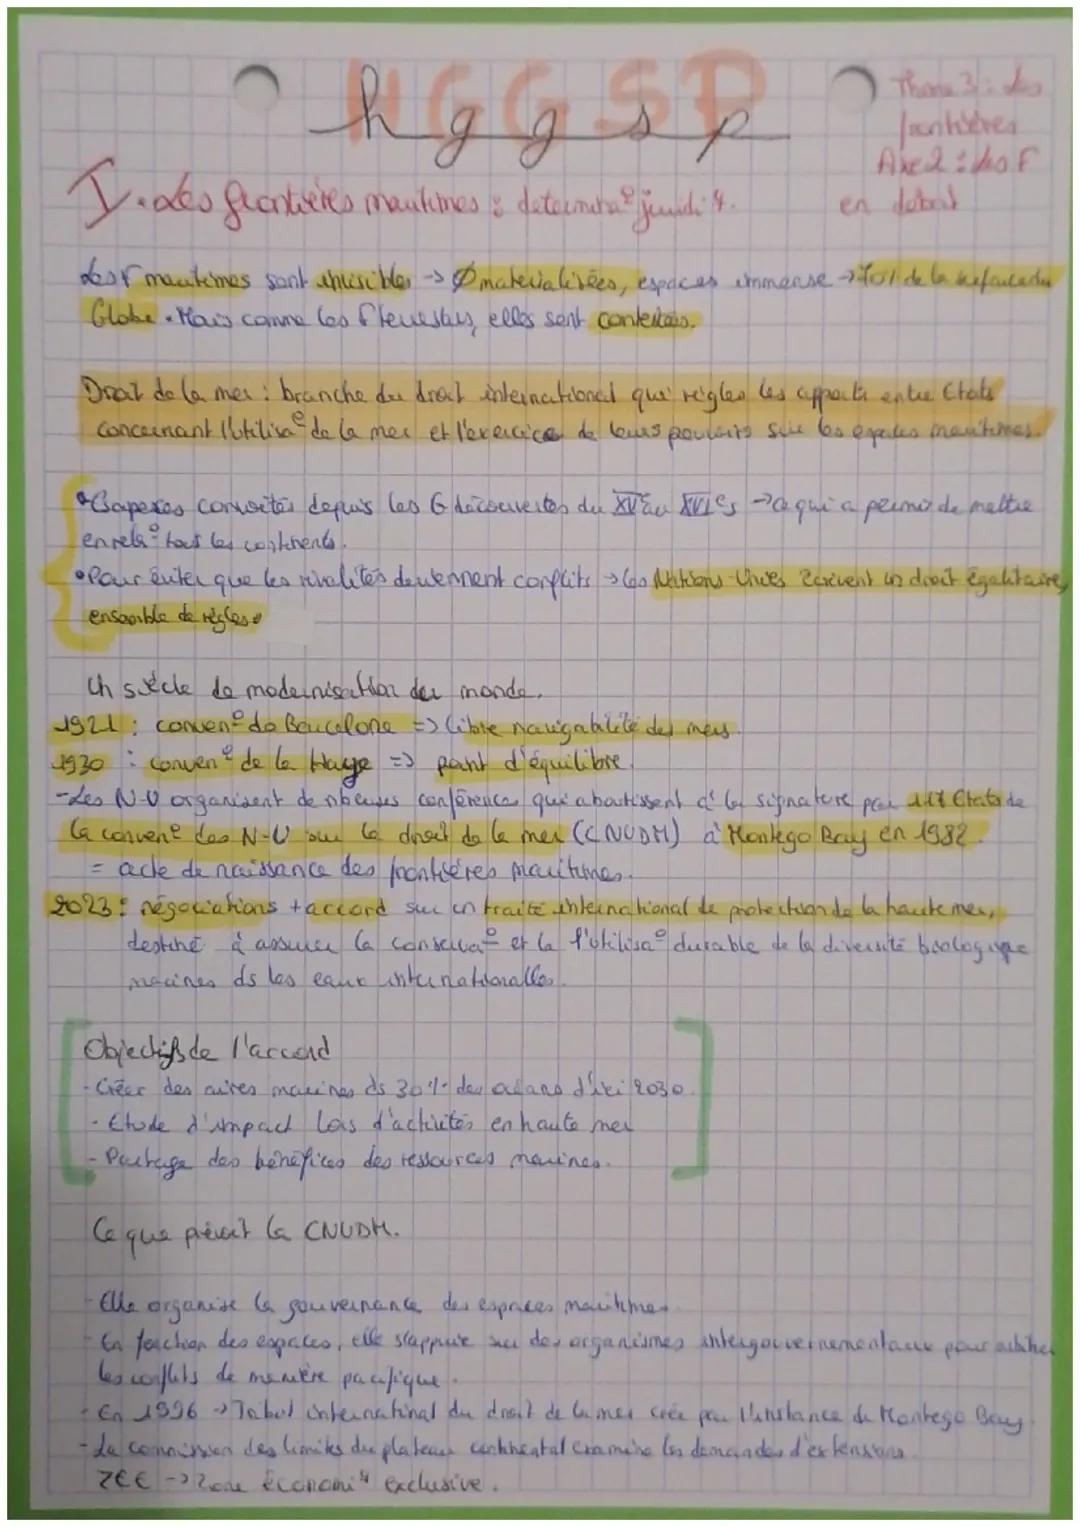 HGGSP
hggsp
Thème 3 : les
frontières
Axe 2 : les F
en débat
I. Les frontières maritimes : determina° juridi q.
Les F maritimes sont invisibles -> Ø materialisées, espaces immense -> 70% de la surface du
Globe. Mais comme les F terrestres, elles sont contestées.
Droit de la mer : branche du droit international qui règles les rapports entre Etats
concernant l'utilisa° de la mer et l'exercice de leurs pouvoirs sur les espaces maritimes.
• Espaces convoités depuis les G découvertes du XVe au XVIe s -> ce qui a permis de mettre
en rela° tout les continents.
• Pour éviter que les rivalités deviennent conflits -> les Nations-Unies écrivent un droit égalitaire,
ensemble de règles.
Un siècle de modernisation du monde.
1921 : conven° de Barcelone => libre navigabilité des mers.
1930 : conven° de la Haye => point d'équilibre.
- Les N-U organisent de nbeuses conférences qui aboutissent à la signature par 117 Etats de
la conven° des N-U sur la droit de la mer (CNUDM) à Montego Bay en 1982.
= acte de naissance des frontières maritimes.
2023 : négociations + accord sur un traité international de protection de la haute mer,
destiné à assurer la conserva° et la l'utilisa° durable de la diversité biologique
marines ds les eaux internationalles.
Objectifs de l'accord
- Créer des aires marines ds 30% des océans d'ici 2030.
- Etude d'impact lors d'activités en haute mer
- Partage des bénéfices des ressources marines.
Ce que prévoit la CNUDM.
- Elle organise la gouvernance des espaces maritimes.
- En fonction des espaces, elle s'appuie sur des organismes intergouvernementaux pour arbitrer
les conflits de manière pacifique.
- En 1996 -> Tribunal international du droit de la mer créé par l'instance de Montego Bay.
- La commission des limites du plateau continental examine les demandes d'extensions.
ZEE -> Zone économi q exclusive.